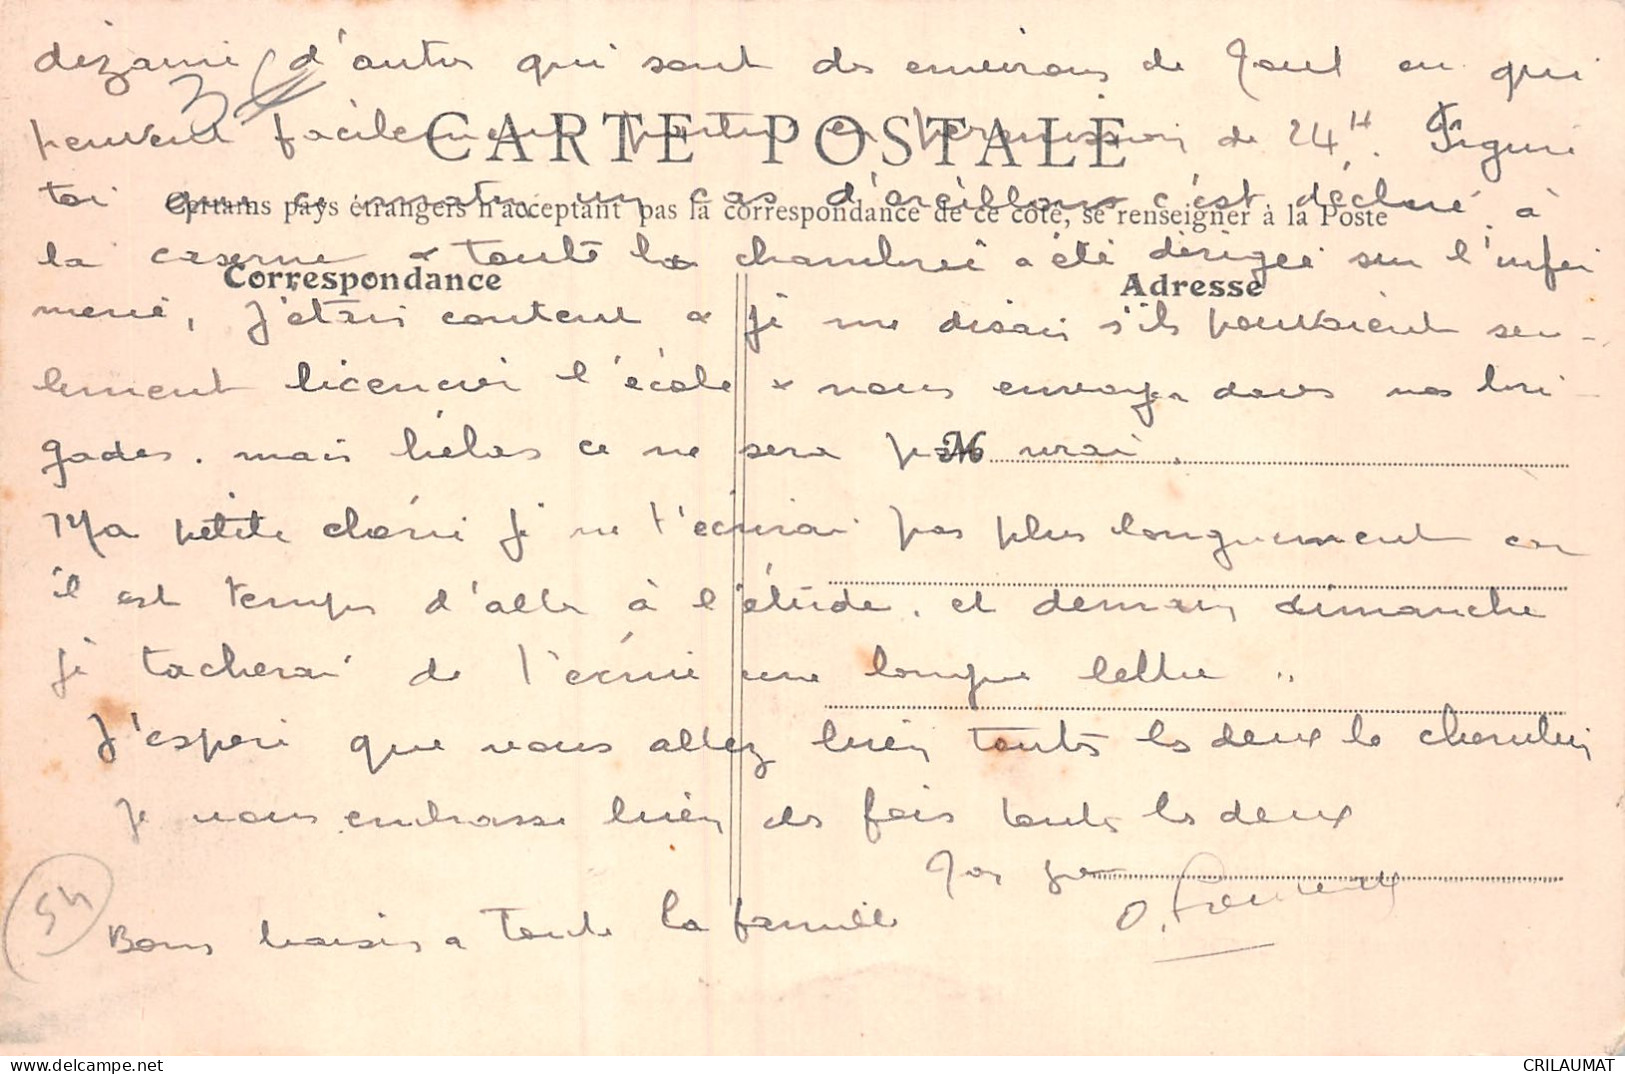 dizaine d'autres qui sont des environs de Toul ou qui
peuvent facilement partir en permission de 24H. Figure
CARTE POSTALE
toi que ce matin un cas d'oreillons c'est déclaré à
Certains pays étrangers n'acceptant pas la correspondance de ce côté, se renseigner à la Poste
la caserne & toute la chambrée a été dirigée sur l'infir
Correspondance
Adresse
merie, j'étais content & je me disais s'ils pouvaient seu-
lement licencier l'école & nous envoyer dans nos bri-
gades. mais hélas ce ne sera pas vrai.
M
Ma petite chérie je ne t'écrirai pas plus longuement car
il est temps d'aller à l'étude. et demain dimanche
je tacherai de t'écrire une longue lettre ..
J'espère que vous allez bien toutes les deux le chérubin
je vous embrasse bien des fois toutes les deux
54
Bons baisers a toute la famille
CRILAUMAT